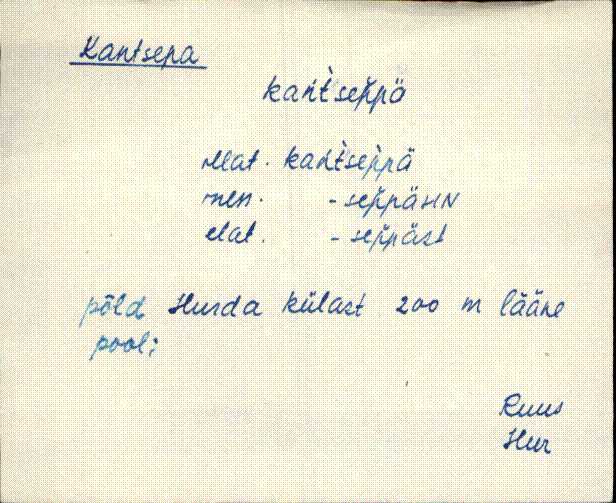 Kantsepa
kaǹt̀seppä
illat. kaǹt̀seppä
inen. -seppäHN
elat. -seppäst
põld Hurda külast 200 m lääne
pool;
Ruus
Hur